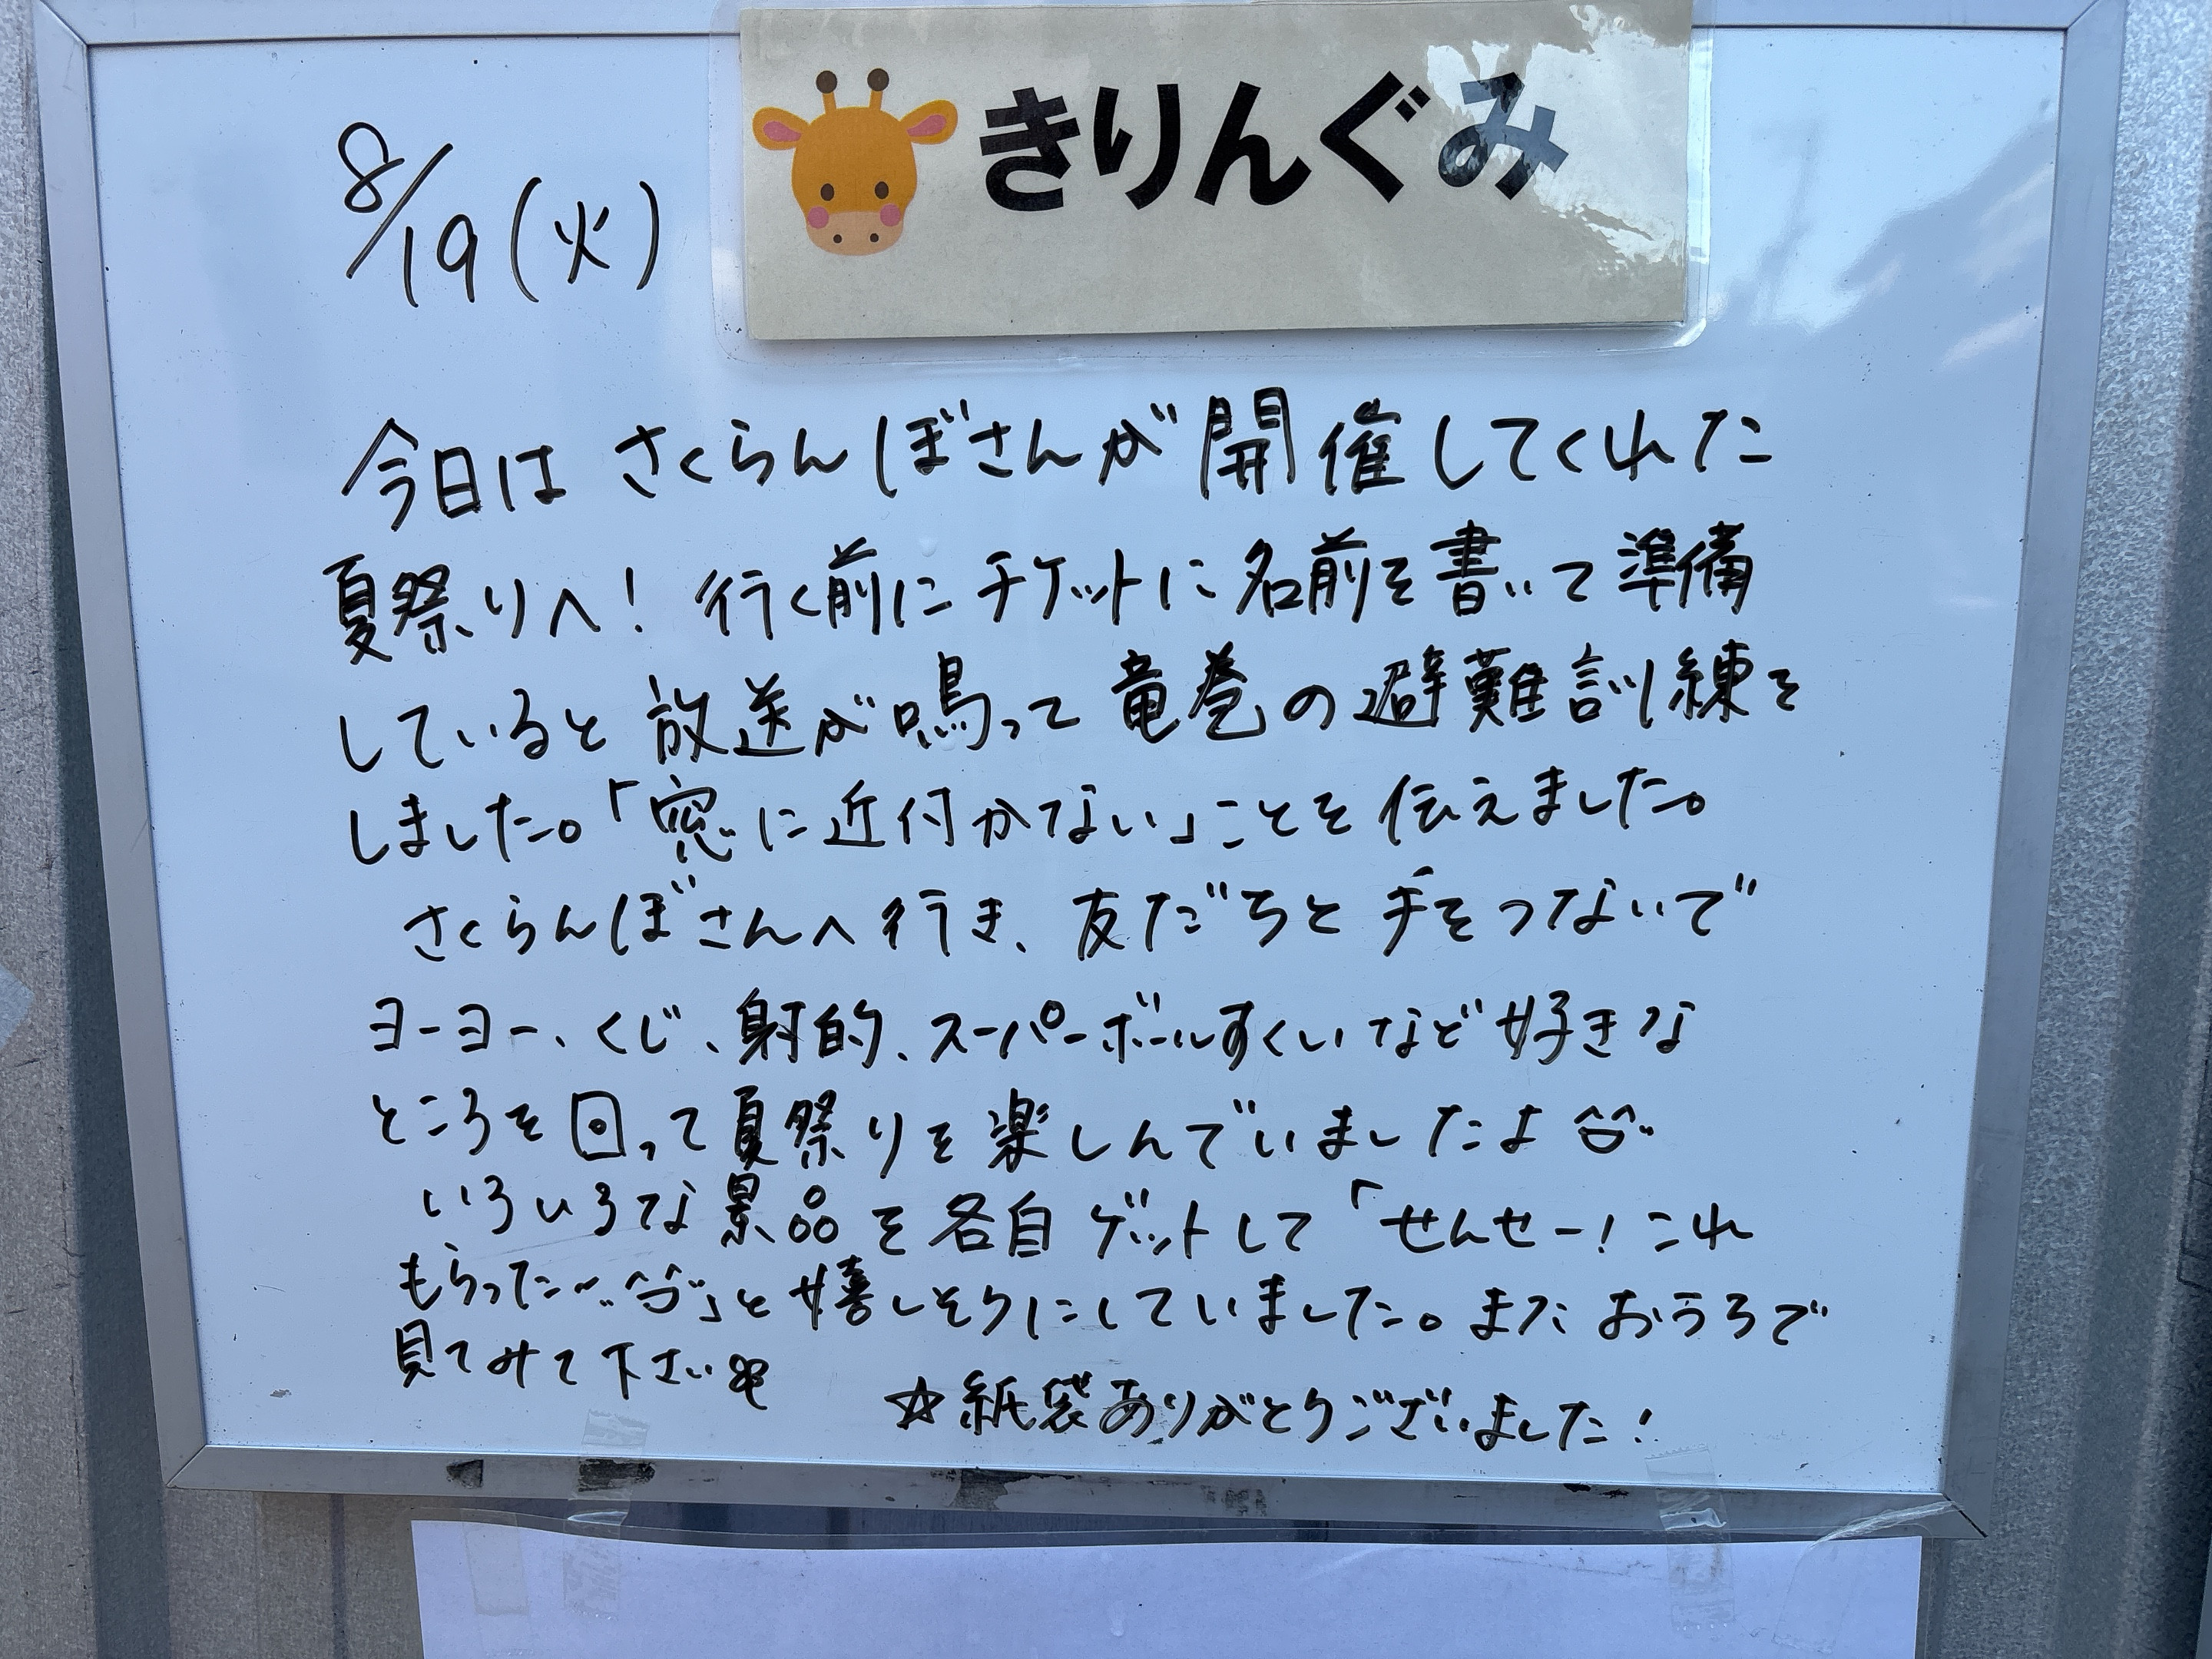 きりんぐみ
8/19(火)
今日は さくらんぼさんが 開催してくれた
夏祭りへ! 行く前に チケットに 名前を 書いて 準備
していると 放送が 鳴って 竜巻の 避難訓練を
しました。「窓に近付かない」ことを 伝えました。
さくらんぼさんへ行き、友だちと 手をつないで
ヨーヨー、くじ、射的、スーパーボールすくいなど好きな
ところを回って夏祭りを楽しんでいましたよ ^^
いろいろな景品を各自ゲットして「せんせー!これ
もらったー ^^」と嬉しそうにしていました。また おうちで
見てみて下さい
☆紙袋ありがとうございました!